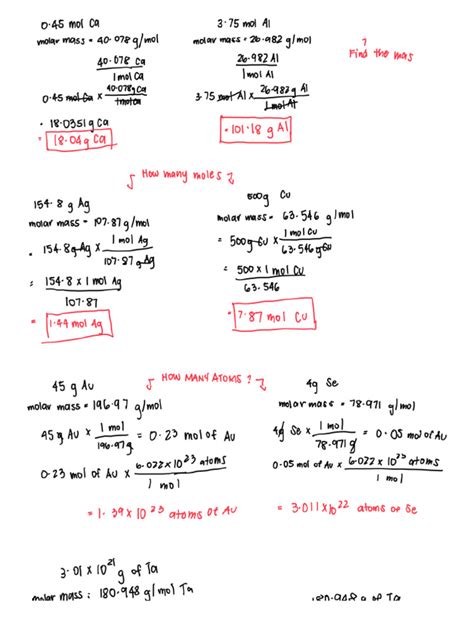 0.45 mol Ca
molar mass = 40.078 g/mol
40.078 Ca
1 mol Ca
0.45 mol Ca × 40.078g Ca
1 mol Ca
= 18.0351 g Ca
= 18.04 g Ca
3.75 mol Al
molar mass = 26.982 g/mol
26.982 Al
1 mol Al
3.75 mol Al × 26.982 g Al
1 mol Al
= 101.18 g Al
?
Find the mas
How many moles
154.8 g Ag
molar mass = 107.87 g/mol
= 154.8g Ag × 1 mol Ag
107.87 g Ag
= 154.8 × 1 mol Ag
107.87
= 1.44 mol Ag
500g Cu
molar mass = 63.546 g/mol
= 500g Cu × 1 mol Cu
63.546 g Cu
= 500 × 1 mol Cu
63.546
= 7.87 mol Cu
HOW MANY ATOMS ?
45 g Au
molar mass = 196.97 g/mol
45 g Au × 1 mol
196.97 g
= 0.23 mol of Au
0.23 mol of Au × 6.022 × 10²³ atoms
1 mol
= 1.39 × 10²³ atoms of Au
4g Se
molar mass = 78.971 g/mol
4g Se × 1 mol
78.971 g
= 0.05 mol of Au
0.05 mol of Au × 6.022 × 10²³ atoms
1 mol
= 3.011 × 10²² atoms of Se
3.01 × 10²¹ g of Ta
molar mass : 180.948 g/mol Ta
180.948 g of Ta